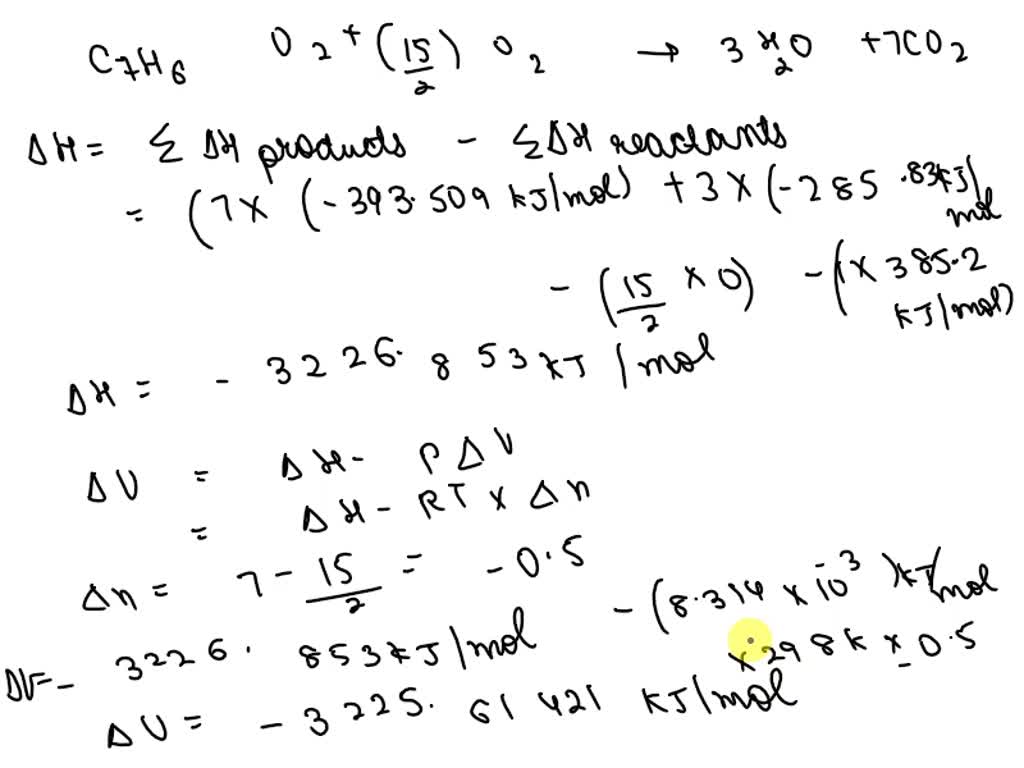 C7H6 O2 + (15/2) O2 → 3 H2O + 7CO2
ΔH = Σ ΔH products - ΣΔH reactants
= (7 x (-393.509 kJ/mol) + 3 x (-285.83kJ/mol
- (15/2 x 0) - (1 x 385.2 kJ/mol)
ΔH = - 3226.853 kJ/mol
ΔU = ΔH - PΔV
= ΔH - RT x Δn
Δn = 7 - 15/2 = -0.5
ΔU = - 3226.853 kJ/mol - (8.314 x 10^-3) kJ/mol x 298k x -0.5
ΔU = -3225.61421 KJ/mol